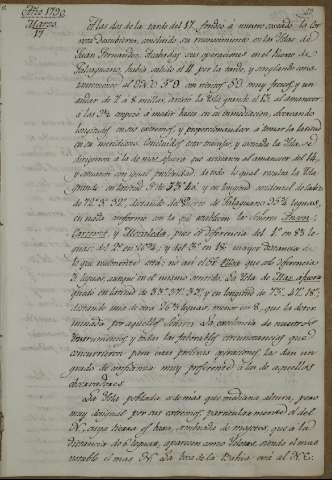 Año 1790
Marzo
17
A las dos de la tarde del 17, fondeó á nuestro costado la Cor
beta descubierta, concluido su reconocimiento en las Islas de
Juan Fernandez. Acabadas sus operaciones en el Puerto de
Talcaguano, habia salido el 4 por la tarde, y
con vientos S.O. muy frescos, y un
andar de 7 á 8 millas, avistó la Isla grande el 12 al amanecer
á las 9¼ empezó á medir bases en su inmediacion, observando
longitud en sus extremos, y proporcionandose á tomar la latitud
en su meridiano. Concluidos estos trabajos, y corrida la Isla, se
dirigieron á la de mas afuera que avistaron al amanecer del 14,
y situaron con igual prolixidad, de todo lo qual resulta la Isla
grande en latitud S. de 33° 40' y en longitud occidental de Cadiz
de 72° 8' 32", distando del Puerto de Talcaguano 95¾ leguas,
en nada conforme con la que establecen los Señores Anson,
Carteret, y Moraleda, pues se diferencia del 1º en 83 le
guas; del 2º en 20¾; y del 3º en 18 mayor distancia de
lo que realmente está; no asi el Sr. Ulloa que solo diferencia
3 leguas, aunque en el mismo sentido. La Isla de Mas afuera
quedó en latitud de 33° 47' 32", y en longitud de 73° 47' 18",
distando una de otra 26⅓ leguas, menor en 8 que la deter
minada por aquellos Señores. La excelencia de nuestros
Instrumentos y todas las favorables circunstancias que
concurrieron para estas prolixas operaciones, las dan un
grado de confianza muy preferente á la de aquellos
observadores.
La Isla poblada, ademas que mediana altura, pero
muy desigual por sus extremos, particularmente el del
N., cuyas tierras se han, ó de mayores, que á la
distancia de 6 leguas, aparecen como Islotes, siendo el mas
notable el mas N. La boca de la Bahia está al N.E.